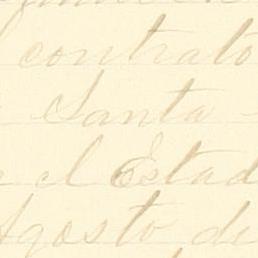 contrato
Santa
el Estad
Agosto de